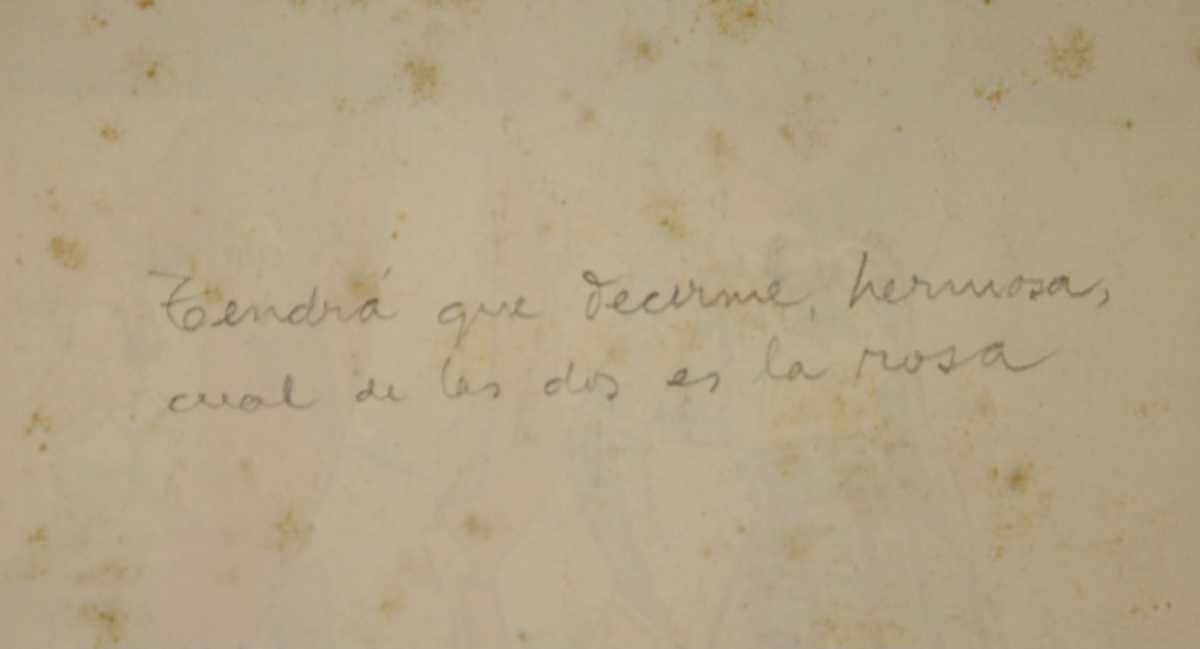 Tendrá que decirme, hermosa,
cual de las dos es la rosa